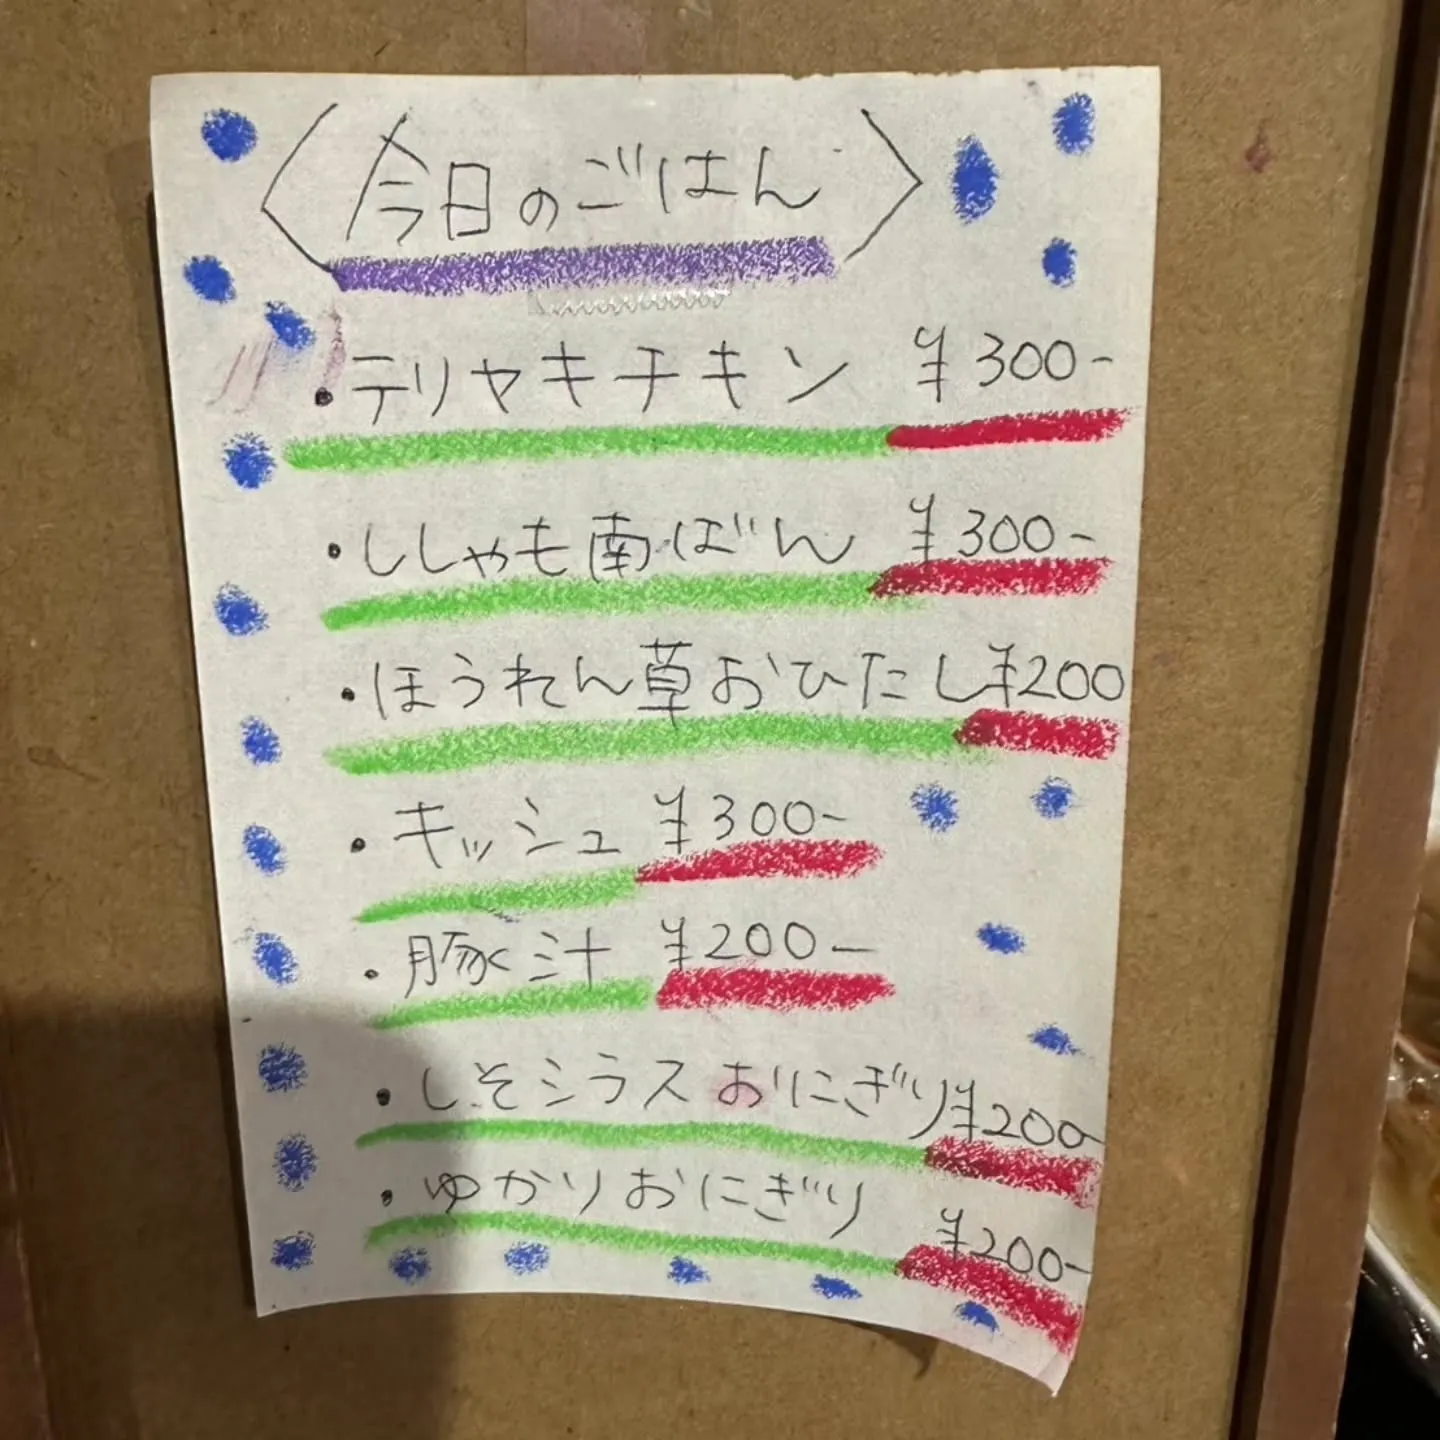 〈今日のごはん〉
・テリヤキチキン ¥300-
・ししゃも南ばん ¥300-
・ほうれん草おひたし¥200
・キッシュ ¥300-
・豚汁 ¥200-
・しそシラスおにぎり¥200-
・ゆかりおにぎり ¥200-